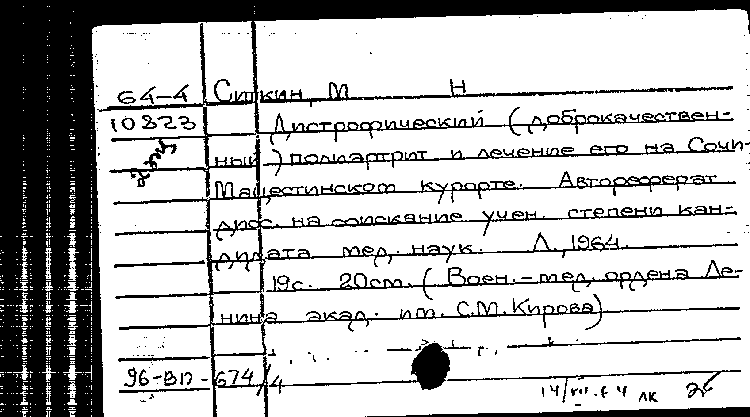 64-4 Ситкин, М Н
10823 Дистрофический (доброкачествен-
ный) полиартрит и лечение его на Сочи-
Мацестинском курорте. Автореферат
дисс. на соискание учен. степени кан-
дидата мед. наук. Л., 1964.
19с. 20см. (Воен.-мед. ордена Ле-
нина акад. им. С.М. Кирова)
96-ВП-674/4
14/VII.64 ЛК